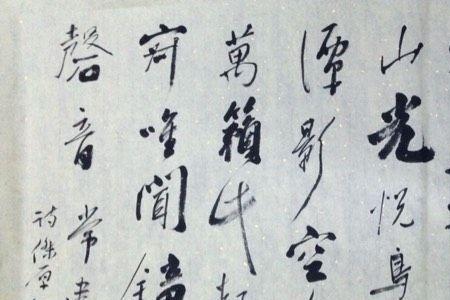 山光悦鳥
潭影空
萬籟此
寂唯聞鐘
磬音常建
詩